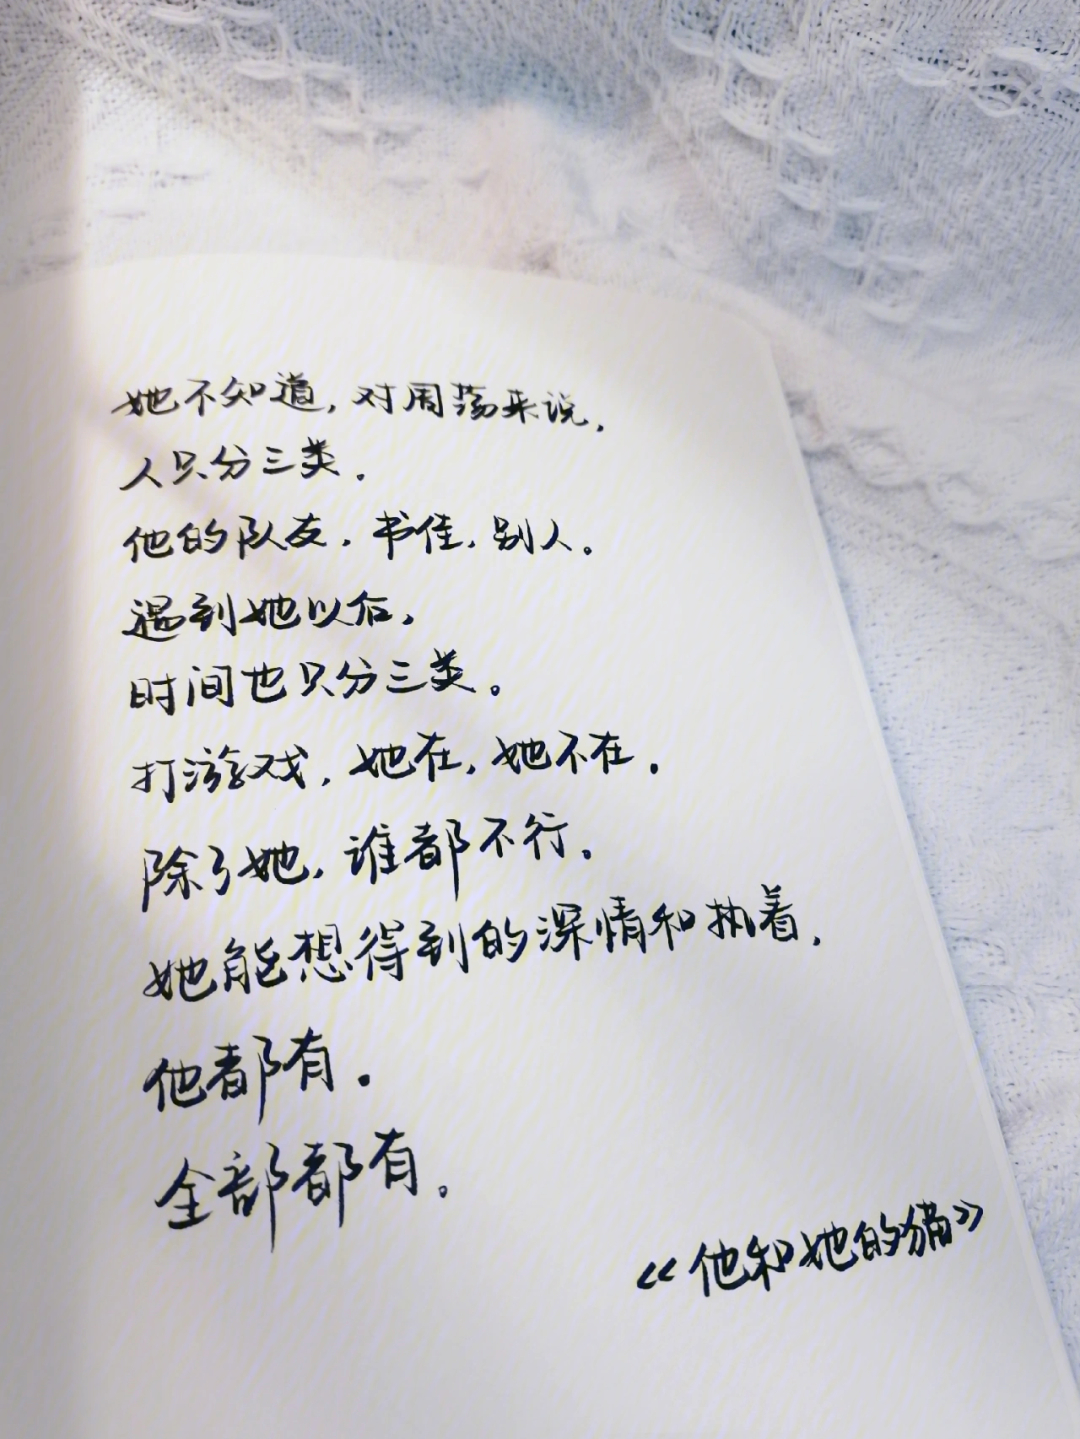 她不知道，对周荡来说，
人只分三类．
他的队友．书佳，别人。
遇到她以后，
时间也只分三类。
打游戏，她在，她不在．
除了她，谁都不行．
她能想得到的深情和执着，
他都有．
全部都有。
《他和她的猫》